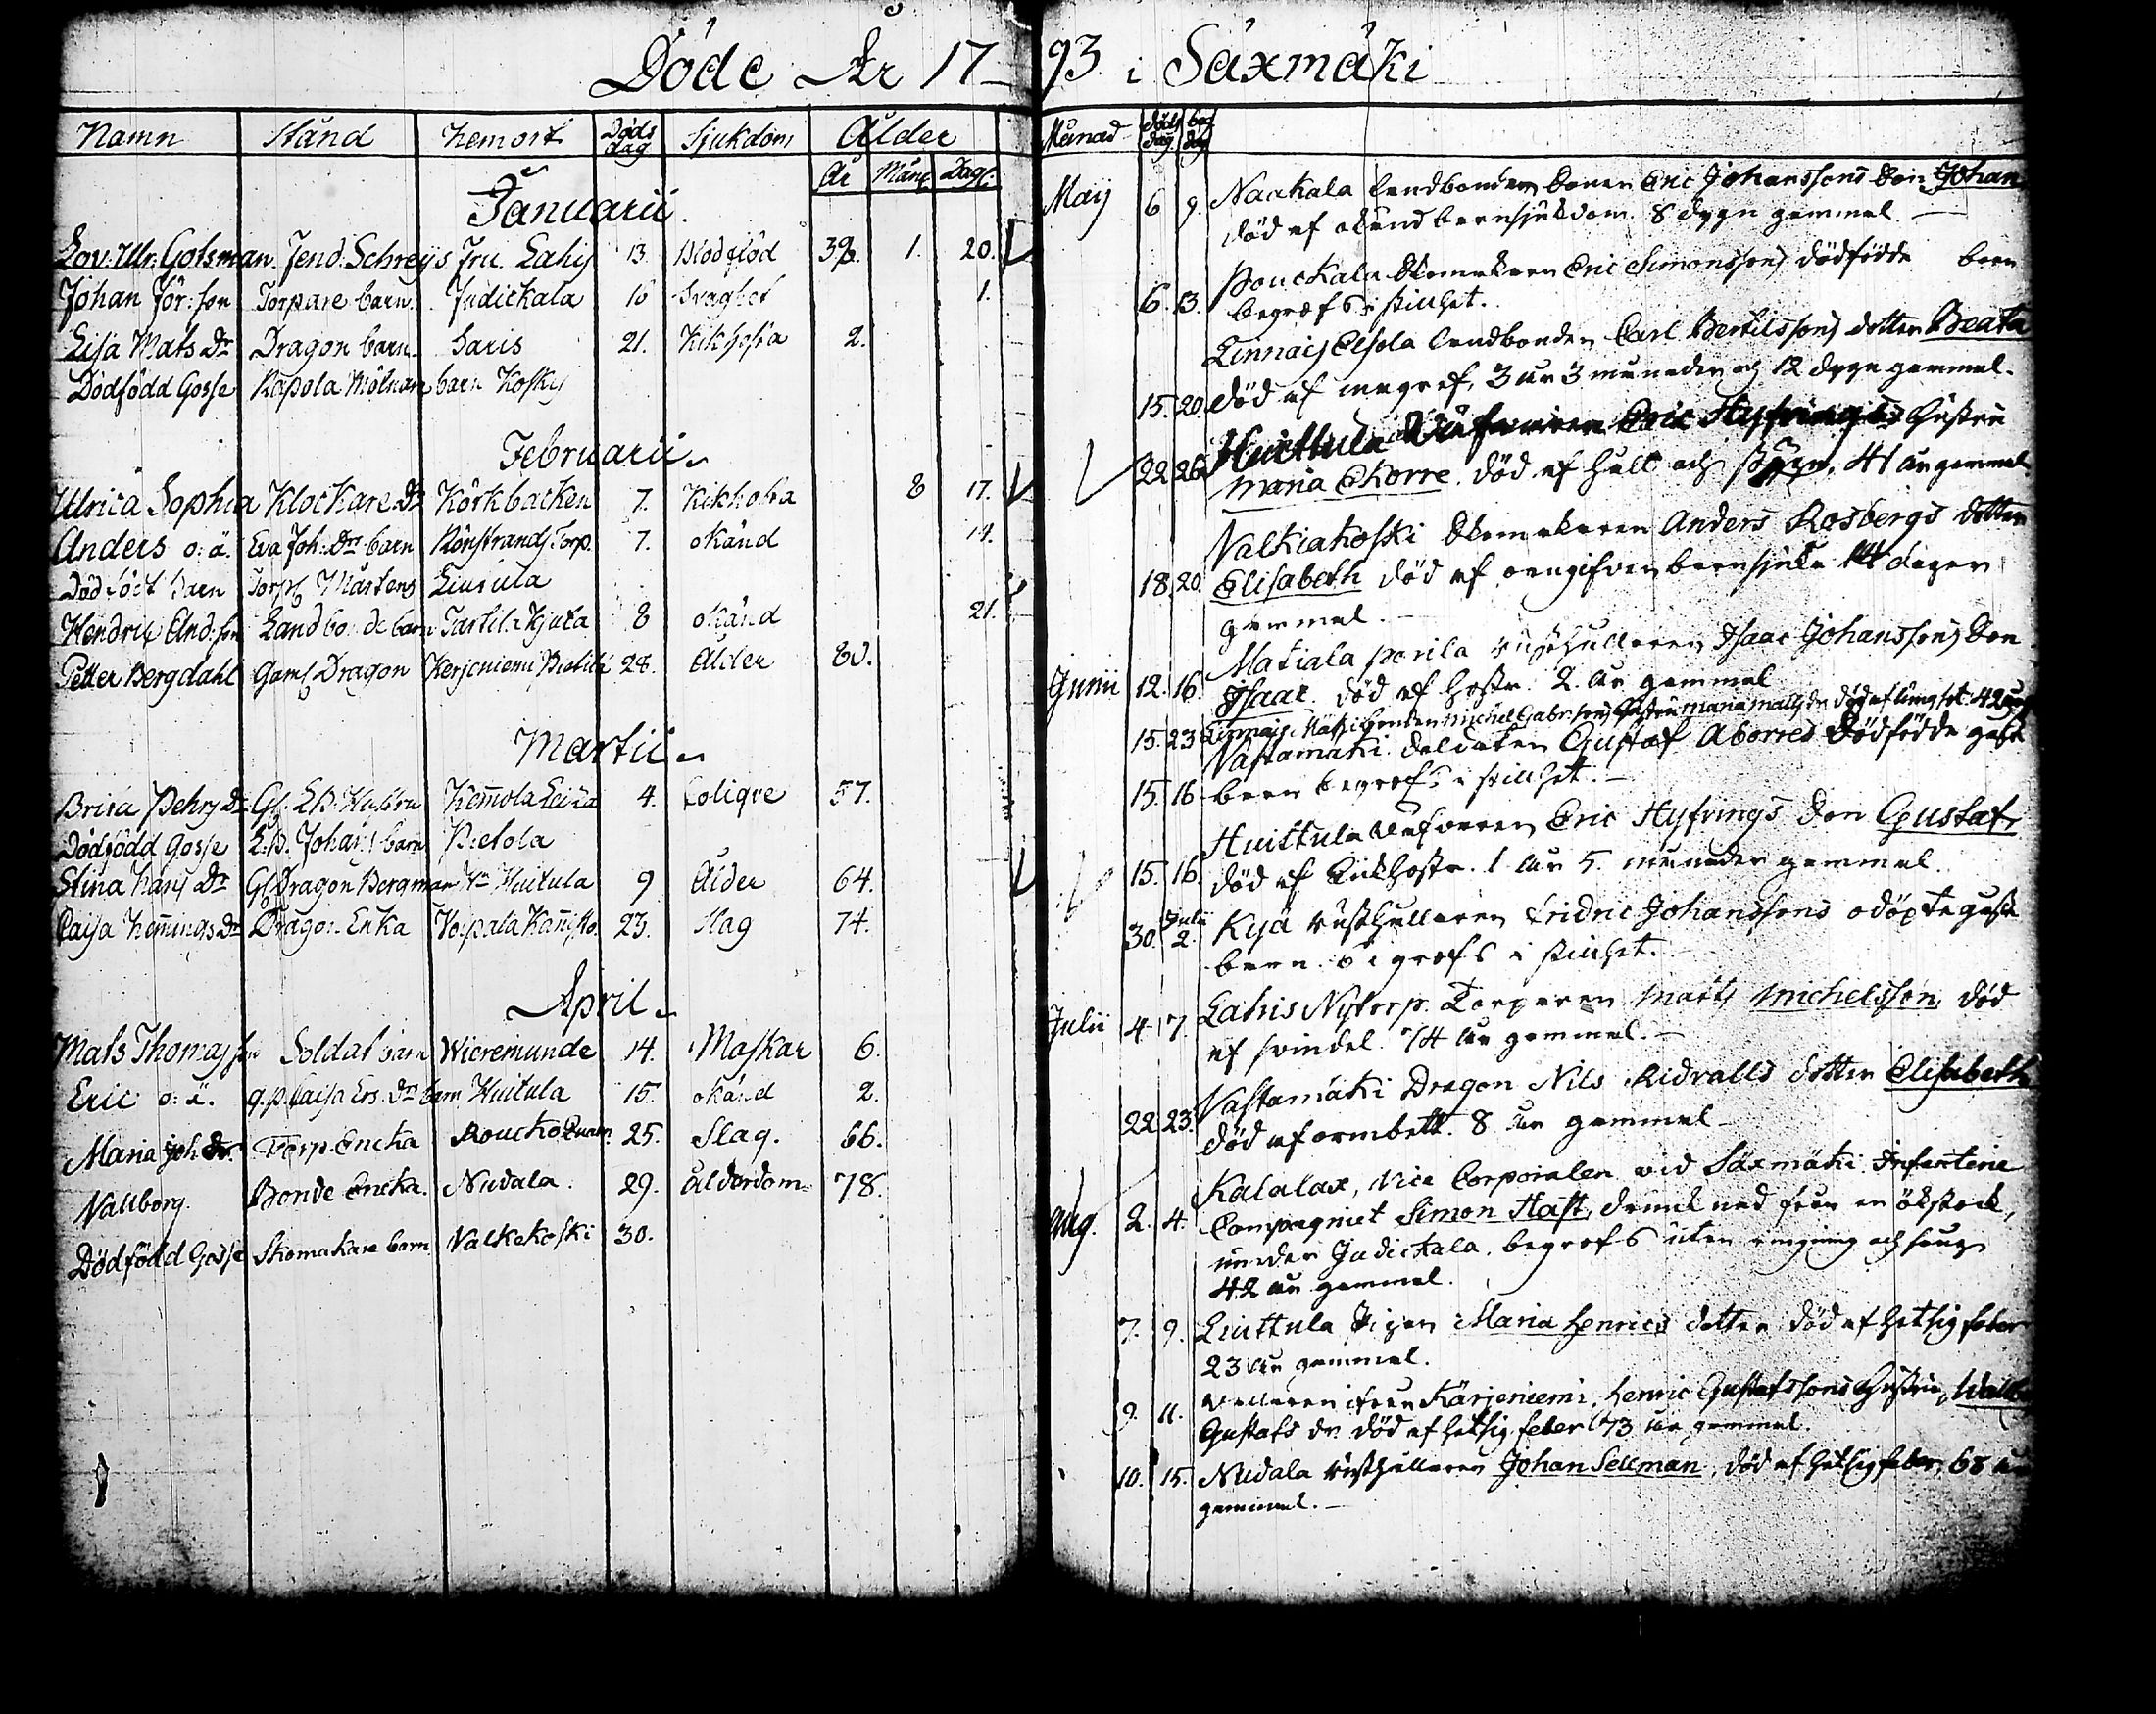 Döde År 17
Namn Stånd Hemort Döds dag Sjukdom Ålder
År Mån: Dag:
Januarii.
Lov: Ulr: Gotsman. Fend: Schreijs Fru. Lahis 13. Blodflöd 39. 1. 20.
Johan Jör: son Torpare barn. Judickala 16 Svaghet 1.
Lisa Mats Dr Dragon barn. Saris 21. Kikhosta 2.
Dödfödd Gosse Kapola Mölnare barn Kosky
Februarii.
Ulrica Sophia Klockare Dr Körkbacken 7. Kikhosta 8 17.
Anders o: ä. Eva Joh: Drs barn Torp. 7. okänd 14.
Dödfödt barn Torp: Mårtens Liusula
Hendric And: son Landbonde barn 8 okänd 21.
Petter Bergdahl Gaml Dragon Kerjeniemi 28. Ålder 80.
Martii.
Brita Pehrs Dr Gl: L.B. Hustru Hemola 4. Colique 57.
Dödfödd Gosse L.B. Johans barn Pietola
Stina Hans Dr Gl Dragon Bergmans Huitula 9 Ålder 64.
Caisa Hemmings Dr Dragon Enka Voipala 23. Slag 74.
April.
Mats Thomas son Soldat barn Wieremunde 14. Maskar 6.
Eric o: ä. q.p. Caisa Ers. Drs barn Huitula 15. okänd 2.
Maria Joh Dr. Torp. Encka Roucko 25. Slag. 66.
Vallborg. Bonde Encka. Nudala. 29. ålderdom 78.
Dödfödd Gosse Skomakare barn Valkekoski 30.
93. i Säxmäki
Månad döds dag beg dag
Maij 6 9. Naakala landbonden Eric Johanssons Son Johan
död af okänd barnsjukdom. 8 dygn gammal.
6. 13. Skomakaren Eric Simonssons dödfödde barn
begrofs i stillhet.
Linnais Eljola landbonden Carl Bertilssons dotter Beata
15. 20. död af magref, 3 år 3 månader och 12 dygn gammal.
22 26 Huittula Eric Hyfvings hustru
Maria Chorre. död af håll och styng, 41 år gammal
Valkiakoski Skomakaren Anders Rosbergs dotter
18. 20. Elisabeth död af oangifven barnsjuka 14 dagar
gammal.
Matiala Perila rusthållaren Isaac Johanssons Son
Junii 12. 16. Isaac. död af hosta. 2. år gammal
15. 23 Linnais bonden Michel Gabr:sons hustru Maria Matts dr död af lungsot. 42 år
Vastamäki. Soldaten Gustaf Aborres dödfödde gosse
15. 16 barn begrofs i stillhet.
Huittula Eric Hyfvings Son Gustaf,
15. 16. död af kikhosta. 1 år 5. månader gammal.
30. Julii 2. Kyjä rusthållaren Fridric Johanssons odöpte gosse
barn. begrofs i stillhet.
Julii 4. 7. Lahis Nytorp. Torparen Matts Michelsson, död
af svindel. 74 år gammal.
Vastamäki Dragon Nils Ridvalls dotter Elisabeth
22 23. död af ormbett. 8 år gammal
Kalalax, Vice Corporalen vid Säxmäki Infanterie
Aug. 2. 4. Compagniet Simon Haft, drunknad från en ökstock,
under Judickala. begrofs utan ringning och sång
42 år gammal.
7. 9. Liuttula Pigan Maria Henrics dotter död af hetsig feber
23 år gammal.
9. 11. Vallaren ifrån Kärjeniemi, Henric Gustafssons hustru, Wallb
Gustafs dr. död af hetsig feber 73 år gammal.
10. 15. Nudala rusthållaren Johan Sellman, död af hetsig feber, 68 år
gammal.